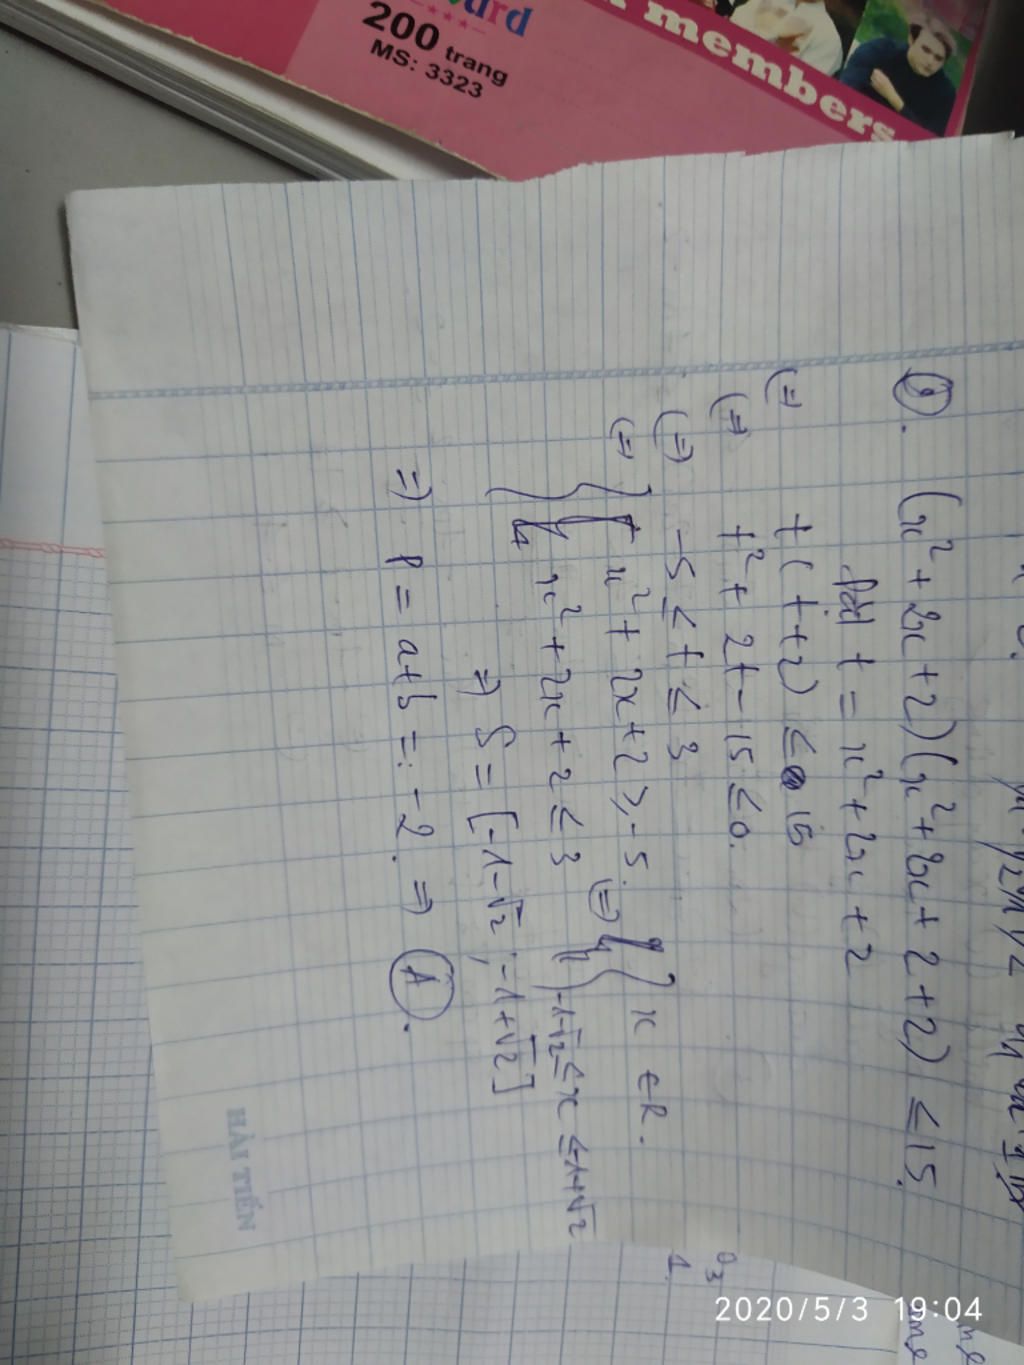 members
200 trang
MS: 3323
①. (x² + 2x + 2)(x² + 2x + 2 + 2) ≤ 15.
Đặt t = x² + 2x + 2
(=) t(t+2) ≤ 15
(=) t² + 2t - 15 ≤ 0.
(=) -5 ≤ t ≤ 3
(=) { x² + 2x + 2 ≥ -5. (=) { x ∈ R.
x² + 2x + 2 ≤ 3 -1-√2 ≤ x ≤ -1+√2
=> S = [-1-√2 ; -1+√2]
=> P = a+b = -2. => Ⓐ.
HẢI TIẾN
2020/5/3 19:04